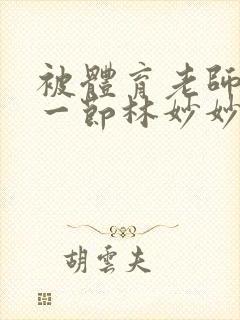 被體育老師
一節林妙妙
胡雲夫